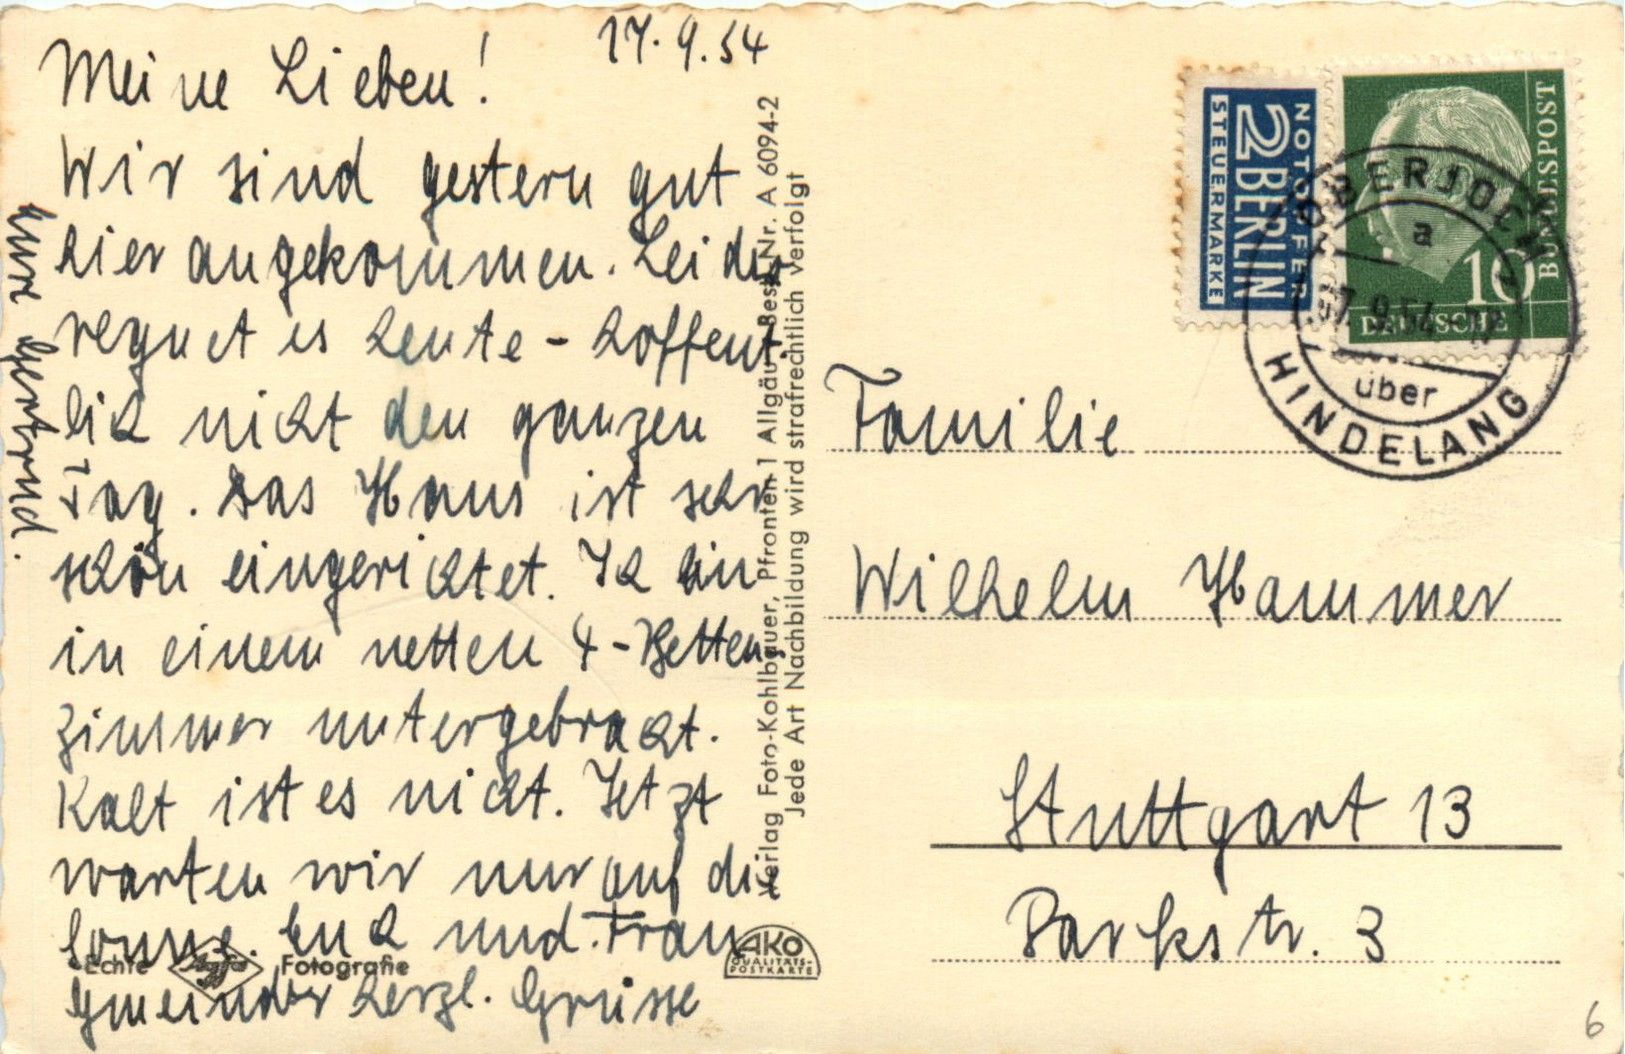 17.9.54
Meine Lieben!
Wir sind gestern gut
hier angekommen. Leider
regnet es heute - hoffent-
lich nicht den ganzen
Tag. Das Haus ist sehr
schön eingerichtet. Ich bin
in einem netten 4-Betten-
zimmer untergebracht.
Kalt ist es nicht. Jetzt
warten wir nur auf die
Sonne. Euch und Frau
Gmeinder herzl. Grüsse
Eure Gertrud.
Verlag Foto-Kohlbauer, Pfronten-1 Allgäu Best. Nr. A 6094-2
Jede Art Nachbildung wird strafrechtlich verfolgt
Echte Agfa Fotografie
AKO
QUALITÄTS-
POSTKARTE
NOTOPFER
2 BERLIN
STEUERMARKE
DEUTSCHE
BUNDESPOST
10
OBERJOCH
a
9.54
über
HINDELANG
Familie
Wilhelm Hammer
Stuttgart 13
Parkstr. 3
6